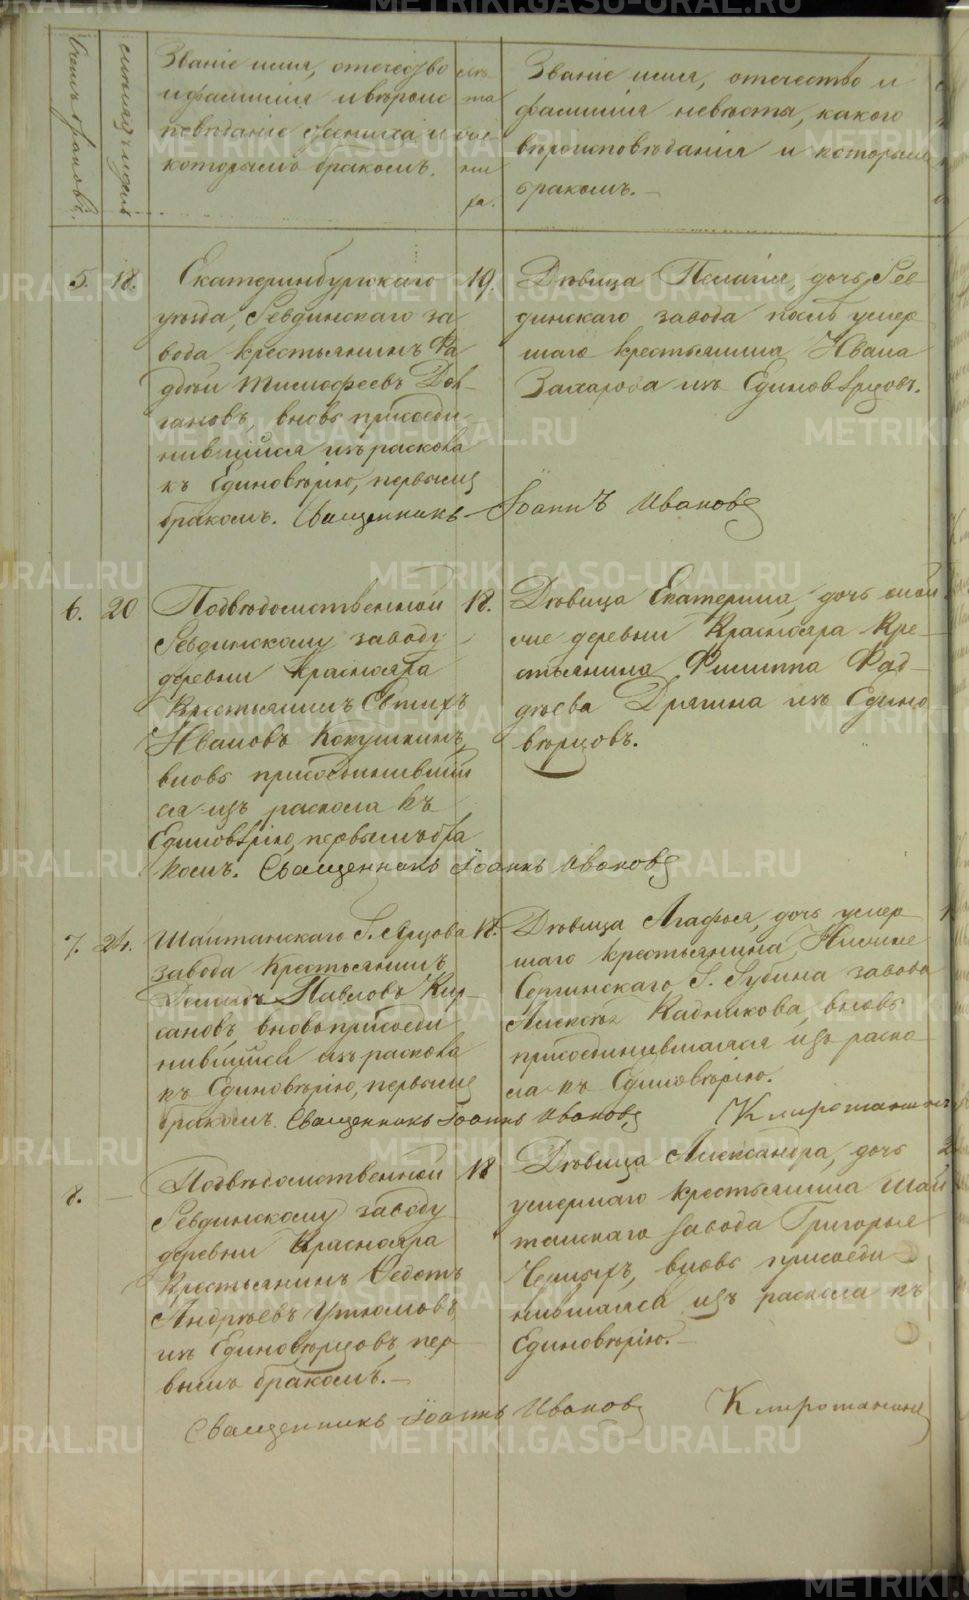 Счетъ браковъ.
Званіе имя, отечество
и фамилія и вѣроис
повѣданіе жениха и
которымъ бракомъ.
лѣ
та
же
ни
ха.
Званіе имя, отечество и
фамилія невѣсты, какого
вѣроисповѣданія и которымъ
бракомъ.
5. 18.
Екатеринбургскаго
уѣзда, Ревдинскаго за
вода крестьянинъ Фа
дѣй Тимофеевъ
вновь присоеди
нившійся изъ раскола
къ Единовѣрію, первымъ
бракомъ. Священникъ Іоаннъ Ивановъ
19.
Дѣвица Пелагія, дочь Рев
динскаго завода послѣ умер
шаго крестьянина Ивана
Захарова изъ Единовѣрцовъ.
6. 20
Подвѣдомственной
Ревдинскому заводу
деревни Краснояра
Крестьянинъ Евтихъ
Ивановъ Кокушкинъ,
вновь присоединивший
ся изъ раскола къ
Единовѣрію, первымъ бра
комъ. Священникъ Іоаннъ Ивановъ
18.
Дѣвица Екатерина, дочь той
же деревни Краснояра Кре
стьянина Филиппа Фад
дѣева Дрягина изъ Едино
вѣрцовъ.
7. 24.
Шайтанскаго Г. Ярцова
завода Крестьянинъ
Павловъ Кир
сановъ вновь присоеди
нившійся изъ раскола
къ Единовѣрію, первымъ
бракомъ. Священникъ Іоаннъ Ивановъ
18.
Дѣвица Агафья, дочь умер
шаго крестьянина Нижне
Сергинскаго Г. Губина завода
Алексѣя Кадникова, вновь
присоединившаяся изъ раско
ла къ Единовѣрію.
8. —
Подвѣдомственной
Ревдинскому заводу
деревни Краснояра
Крестьянинъ Федотъ
Андрѣевъ Утюмовъ,
изъ Единовѣрцовъ, пер
вымъ бракомъ.
18
Дѣвица Александра, дочь
умершаго крестьянина Шай
танскаго завода Григорья
Черныхъ, вновь присоеди
нившаяся изъ раскола къ
Единовѣрію.
Священникъ Іоаннъ Ивановъ
METRIKI.GASO-URAL.RU